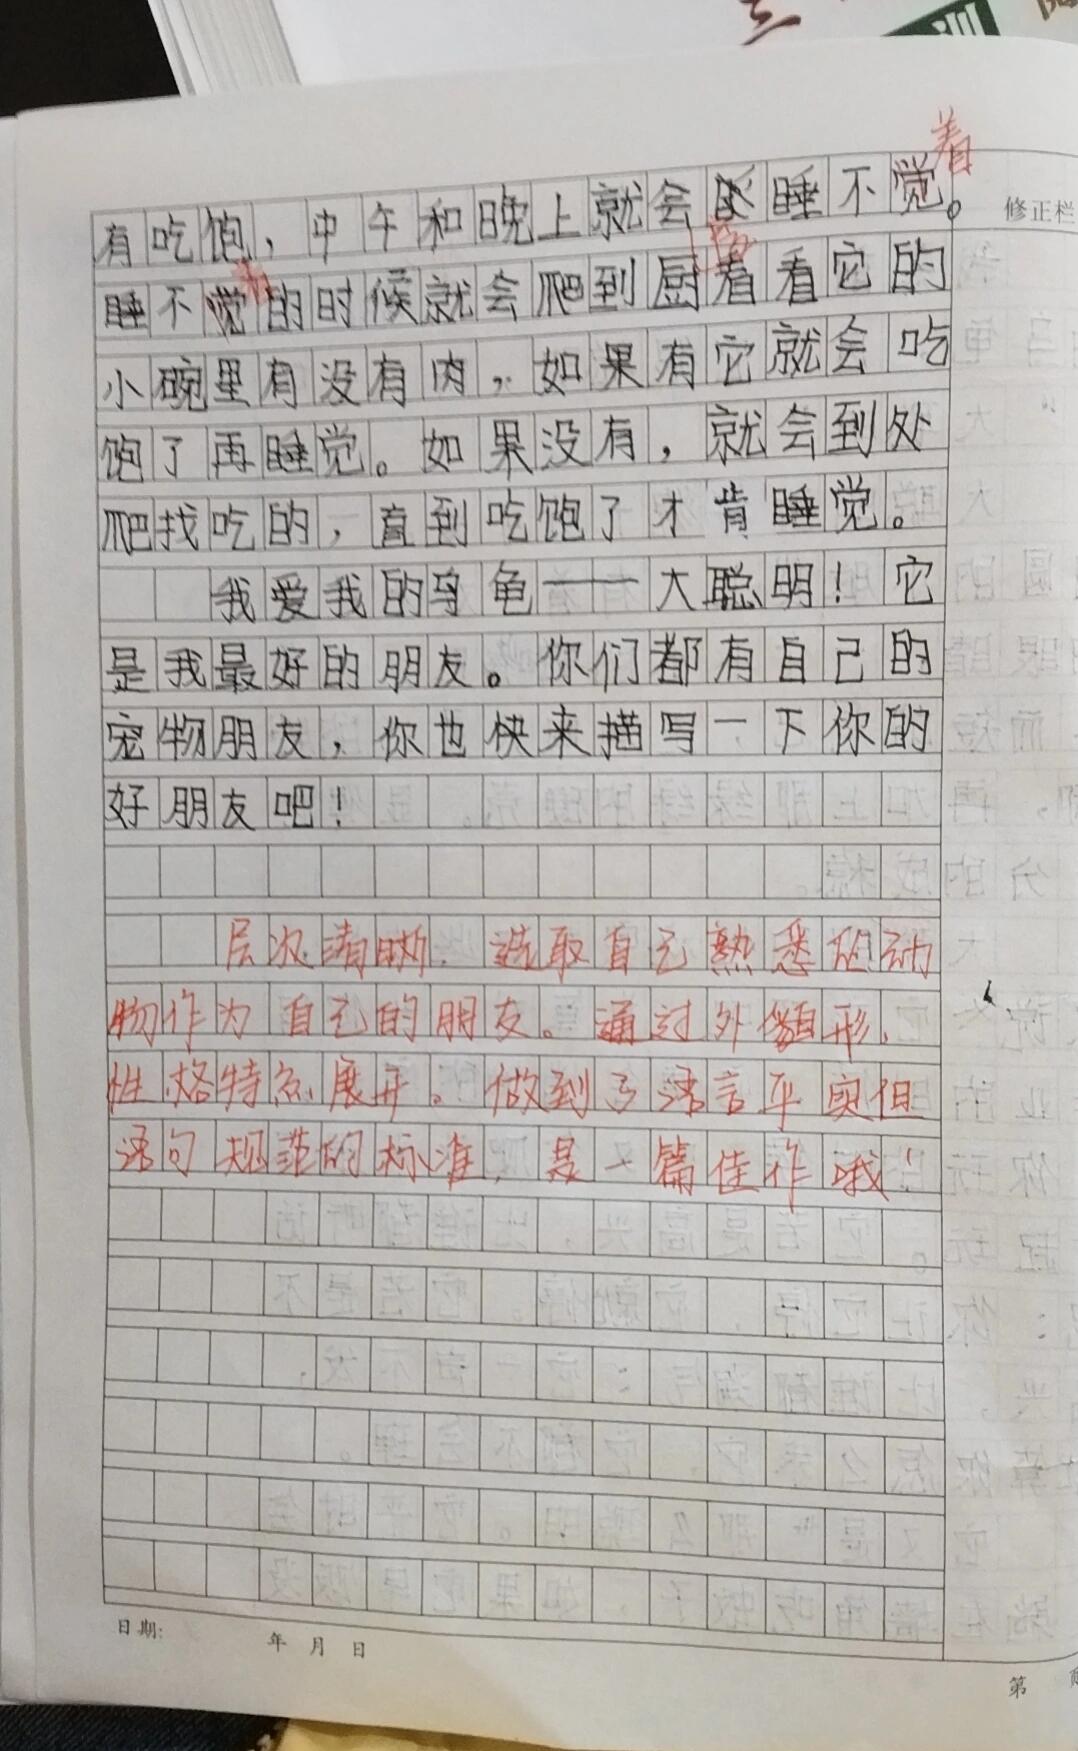 着
有吃饱，中午和晚上就会睡不觉。
修正栏
睡不觉的时候就会爬到厨看看它的
小碗里有没有肉，如果有它就会吃
饱了再睡觉。如果没有，就会到处
爬找吃的，直到吃饱了才肯睡觉。
我爱我的乌龟——大聪明！它
是我最好的朋友。你们都有自己的
宠物朋友，你也快来描写一下你的
好朋友吧！
层次清晰．选取自己熟悉的动
物作为自己的朋友。通过外貌形、
性格特点展开。做到了语言平实但
语句规范的标准，是一篇佳作哦！
日期： 年 月 日
第